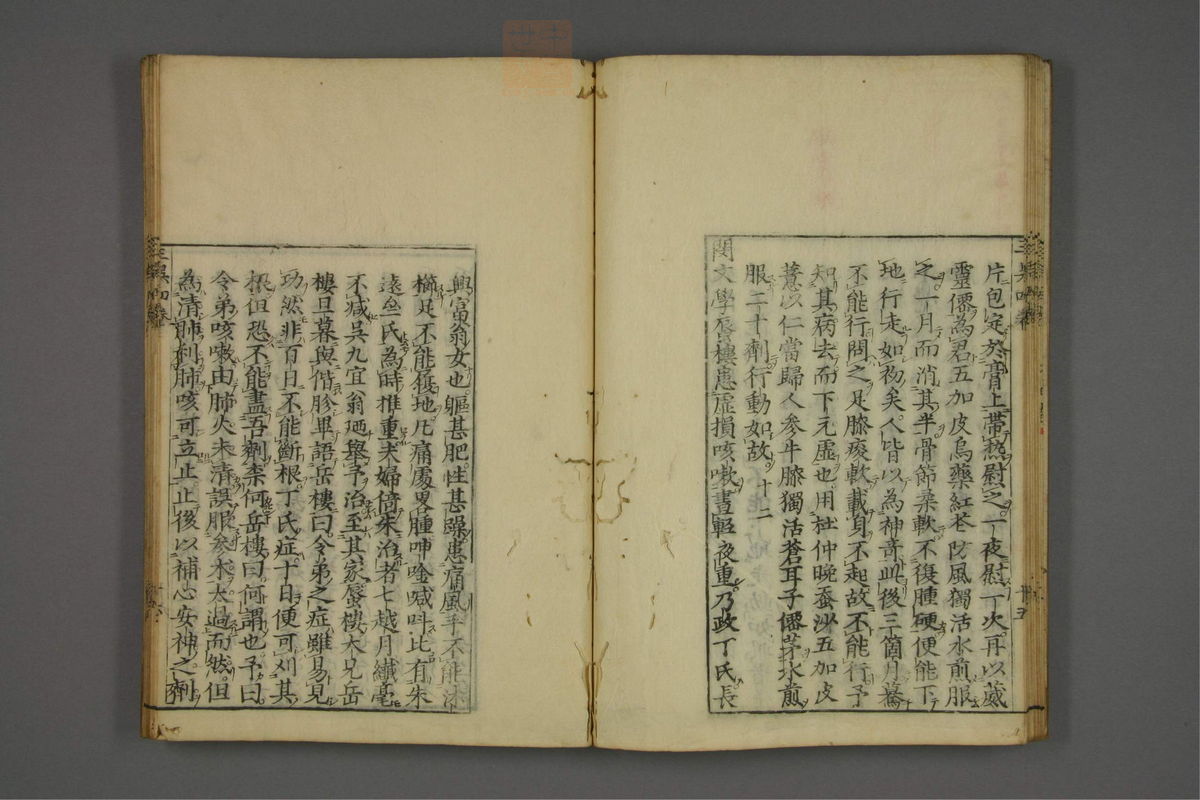 片包定於膏上帶熱慰之一夜慰一次再以葳
靈僊為君五加皮烏藥紅花防風獨活水煎服
之一月而消其半骨節柔軟不復腫硬便能下
地行走如初矣人皆以為神竒此後三箇月驀
不能行問之足膝痠軟載身不起故不能行予
知其病去而下元虛也用杜仲晚蚕沙五加皮
薏以仁當歸人參牛膝獨活蒼耳子僊茅水煎
服二十劑行動如故 十二
閔文學蜃樓患虛損咳嗽晝輕夜重乃政丁氏長
興富翁女也軀甚肥性甚躁患痛風手不能沐
櫛足不能履地凡痛處畧腫呻唫喊呌比有朱
遠叁氏為時推重夫婦倍朱治者七越月纖毫
不减吳九宜翁廼舉予治至其家蜃樓大兄岳
樓旦暮與偕胗畢語岳樓曰令弟之症雖易見
功然非百日不能斷根丁氏症十日便可刈其
根但恐不能盡吾劑柰何岳樓曰何謂也予曰
令弟咳嗽由肺火未清誤服參术太過而然但
為清肺利肺咳可立止止後以補心安神之劑
三吳四卷
十五
三吳四卷
十六